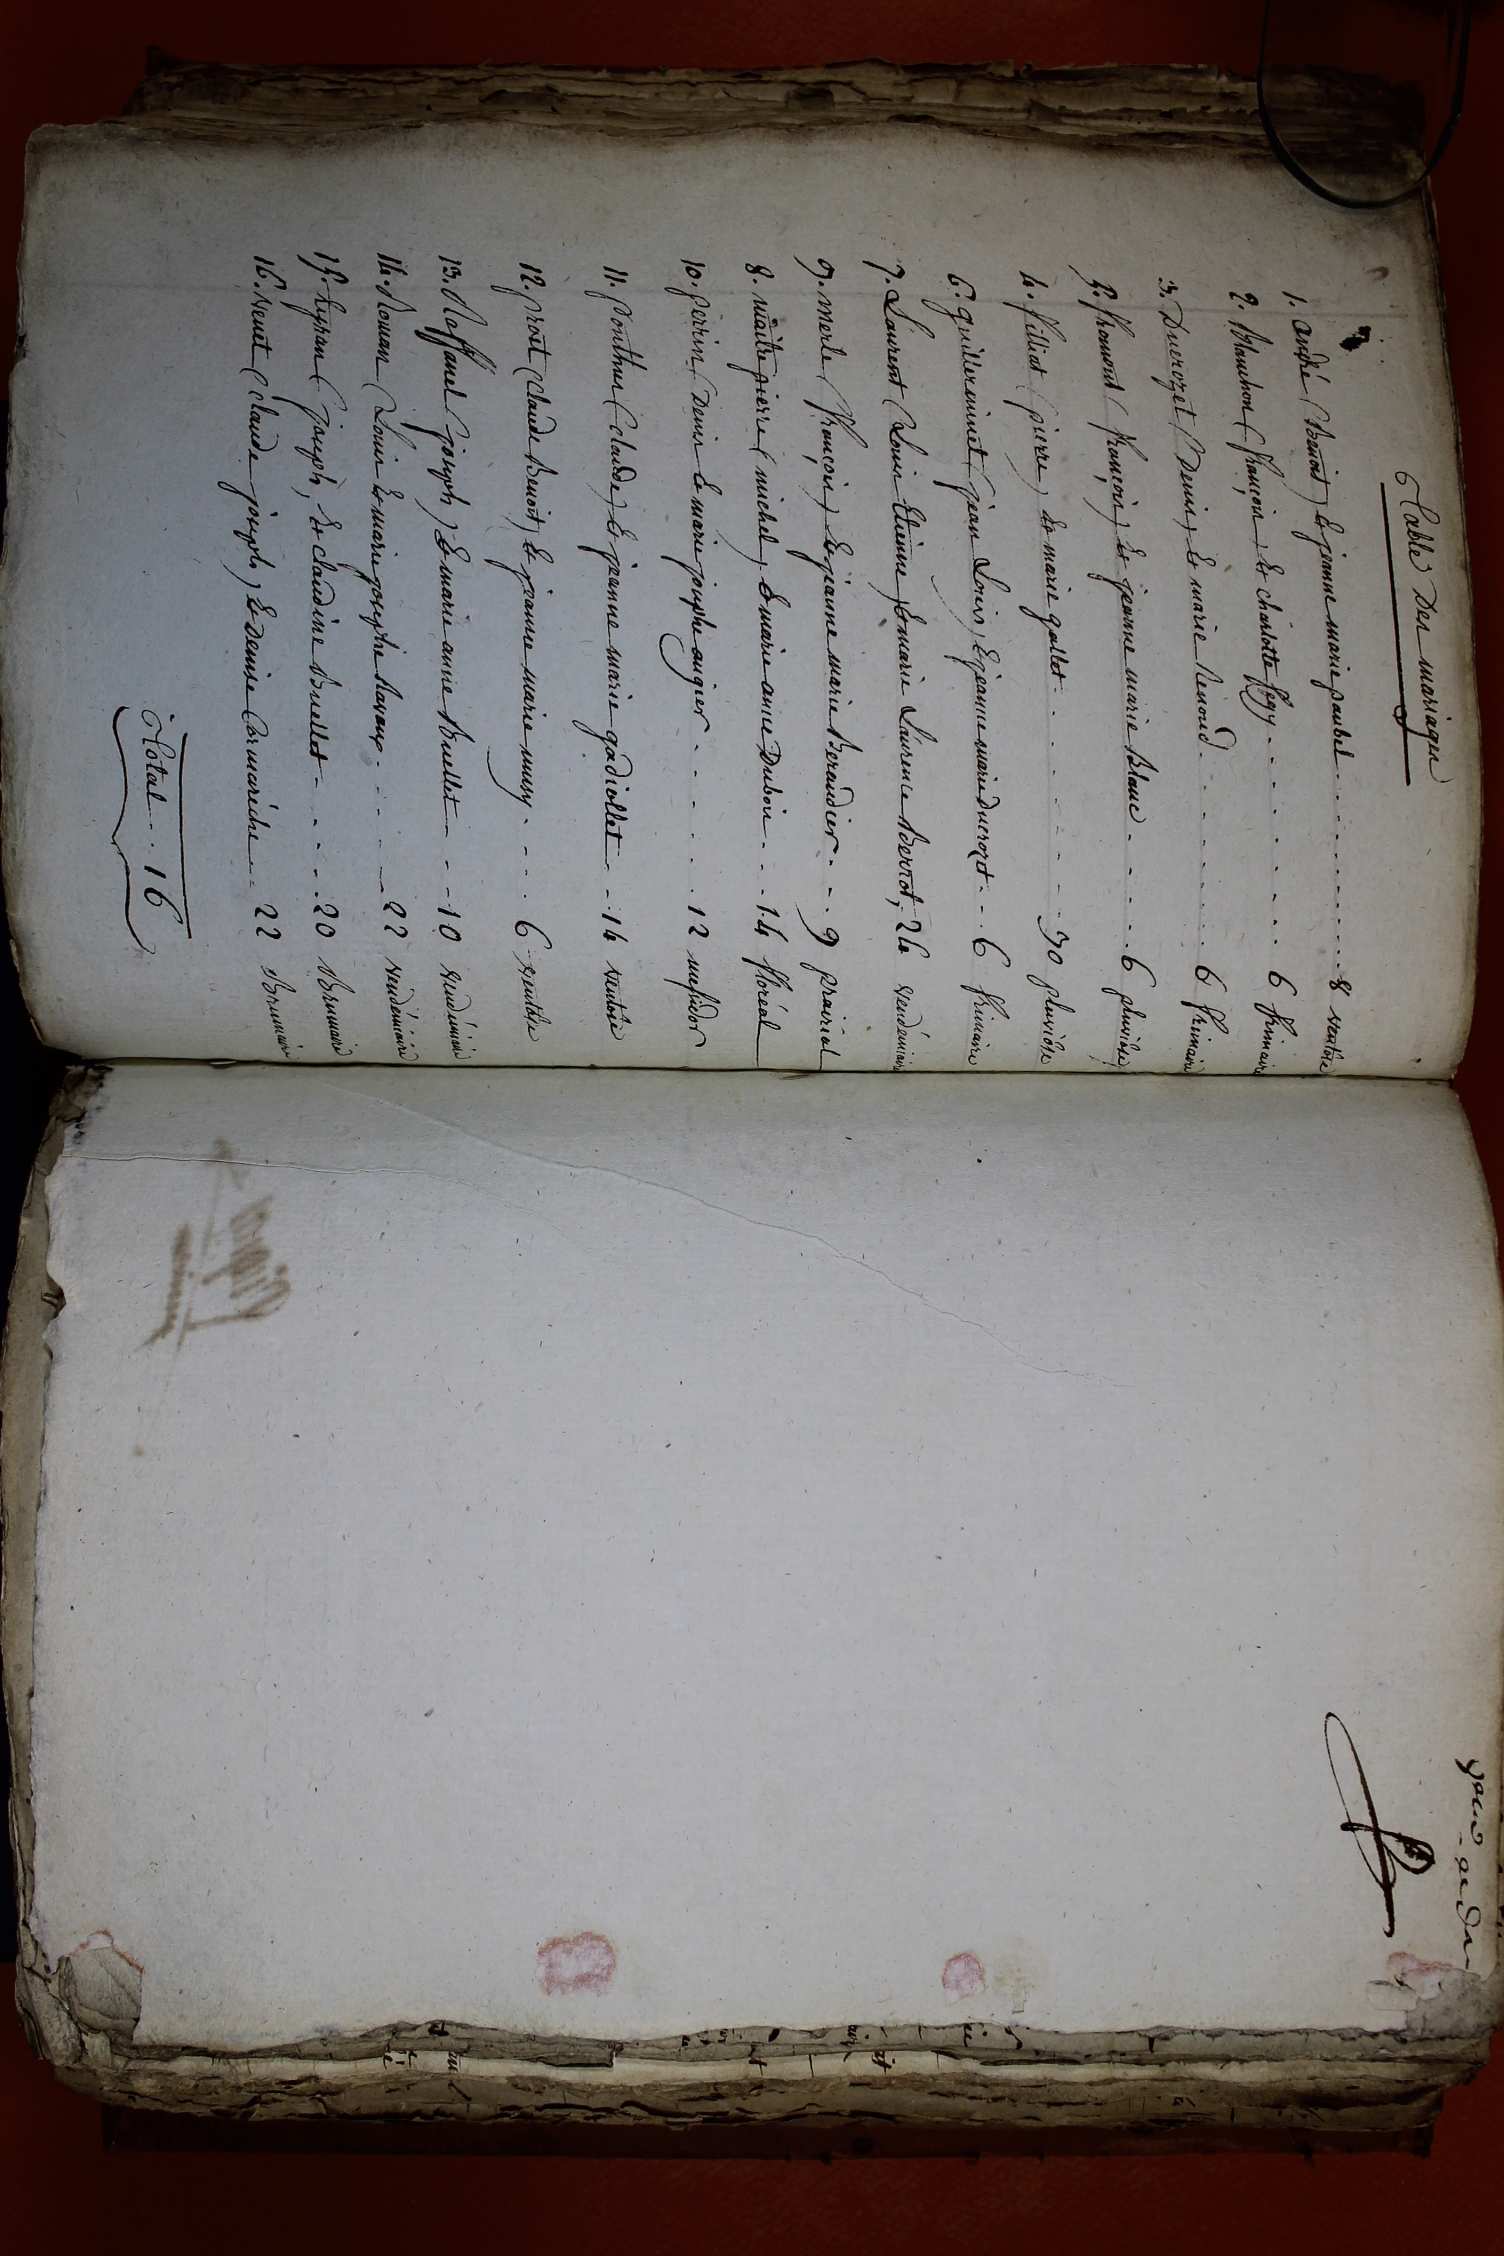 Table Des mariages
1. André (Benoit) & jeanne marie paubel . . . . . . . . . . 8 ventôse
2. Blanchon (françois) & charlotte . . . . . . . . 6 frimaire
3. Ducrozet (Denis) & marie Renoud . . . . . . . . 6 frimaire
5. fromont (françois) & jeanne marie Blanc . . . . . 6 pluviôse
4. filliat (pierre) & marie gallet . . . . . . . 30 pluviôse
6. guillerminet (jean Louis) & jeanne marie Ducrozet . . . 6 frimaire
7. Laurent (Louis Etienne) & marie Laurence Berrot, 24 vendémiaire
9. merle (françois) & jeanne marie Beraudier . . . 9 prairial
8. maitrepierre (michel) & marie anne Dubois . . . 14 floréal
10. perrin (Denis & marie josephe augier . . . . . 12 messidor
11. Ponthus (claude) & jeanne marie gadiollet . . 14 ventôse
12. prost (claude Benoit) & jeanne marie musy . . . . 6 ventôse
13. Raffanel (joseph) & marie anne Buellet . . . 10 vendémiaire
14. Roman (Louis & marie josephe . . . . . 22 vendémiaire
15. (joseph) & claudine Buellet . . . . . 20 Brumaire
16. Venet (claude joseph) & Denise Cormarèche . . 22 Brumaire
Total . . 16